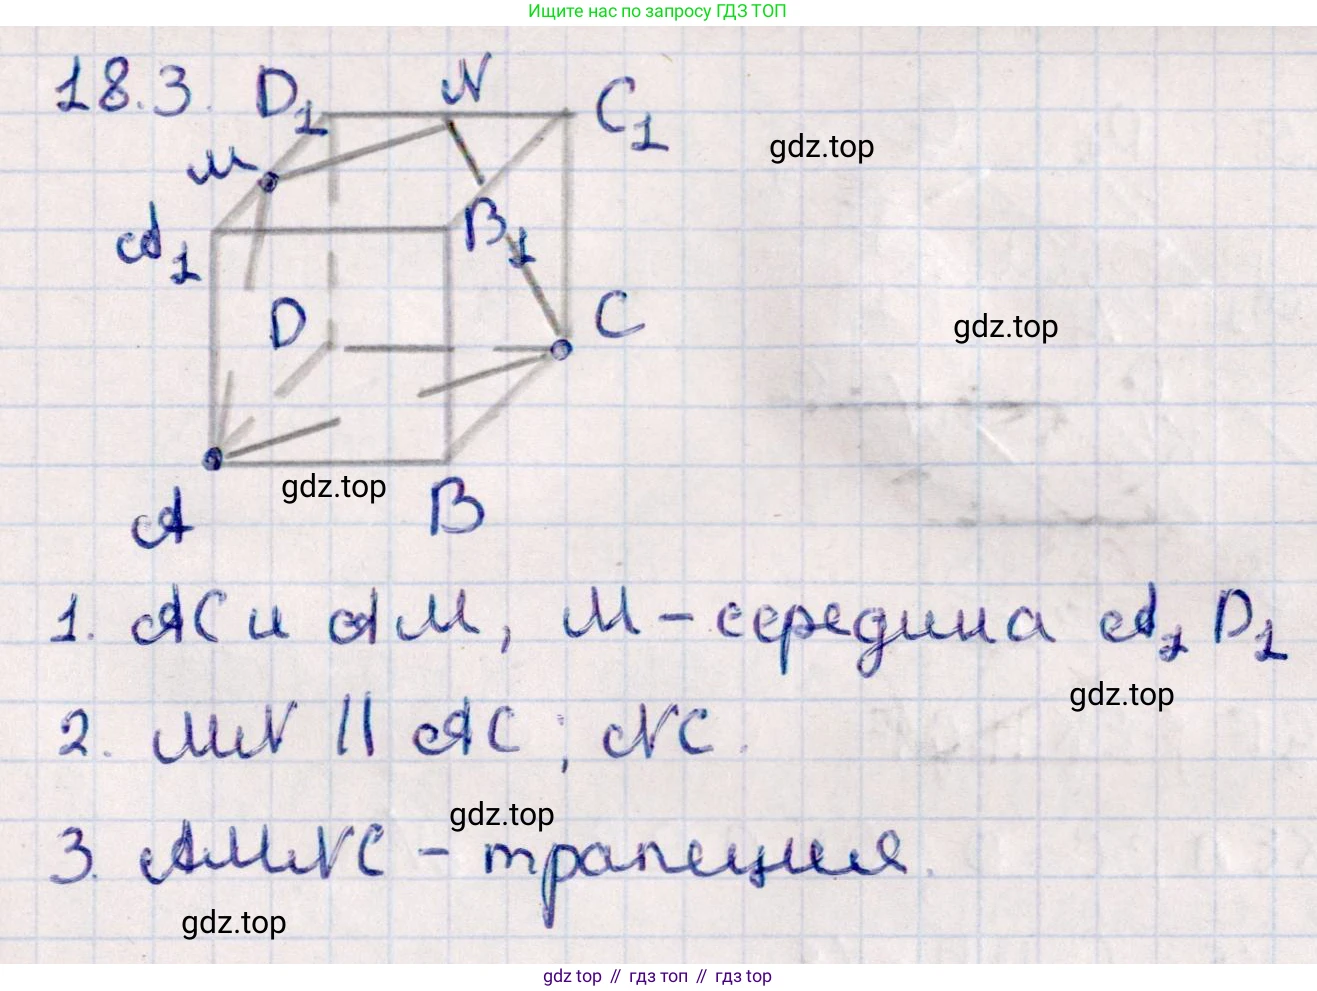 Ищите нас по запросу ГДЗ ТОП
18.3.
D₁
N
C₁
M
gdz.top
A₁
B₁
D
C
gdz.top
gdz.top
A
B
1. AC и AM, M - середина A₁D₁
gdz.top
2. MN || AC; NC.
gdz.top
3. AMNC - трапеция.
gdz.top
gdz top // гдз топ // gdz top